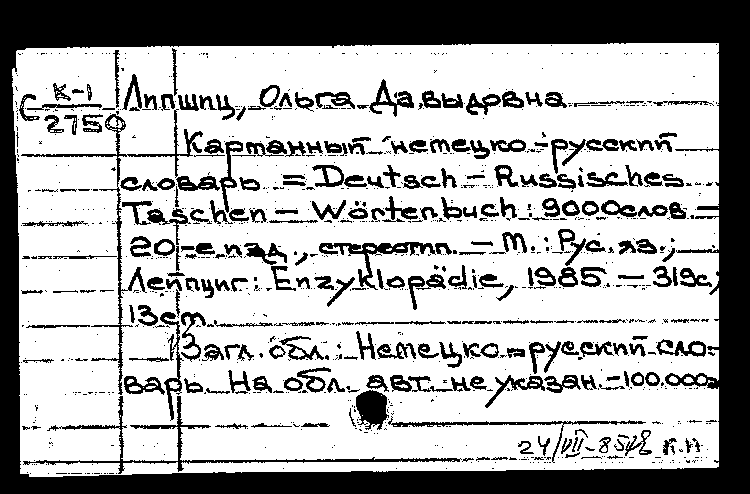 С К-1
2750
Липшиц, Ольга Давыдовна
Карманный немецко-русский
словарь = Deutsch - Russisches
Taschen - Wörtenbuch : 9000слов -
20-е изд., стереотип. - М.: Рус. яз.;
Лейпциг: Enzyklopädie, 1985. - 319с;
13cm.
Загл. обл.: Немецко-русский сло-
варь. На обл. авт. не указан. -100.000э
24/VII-85 К.Н